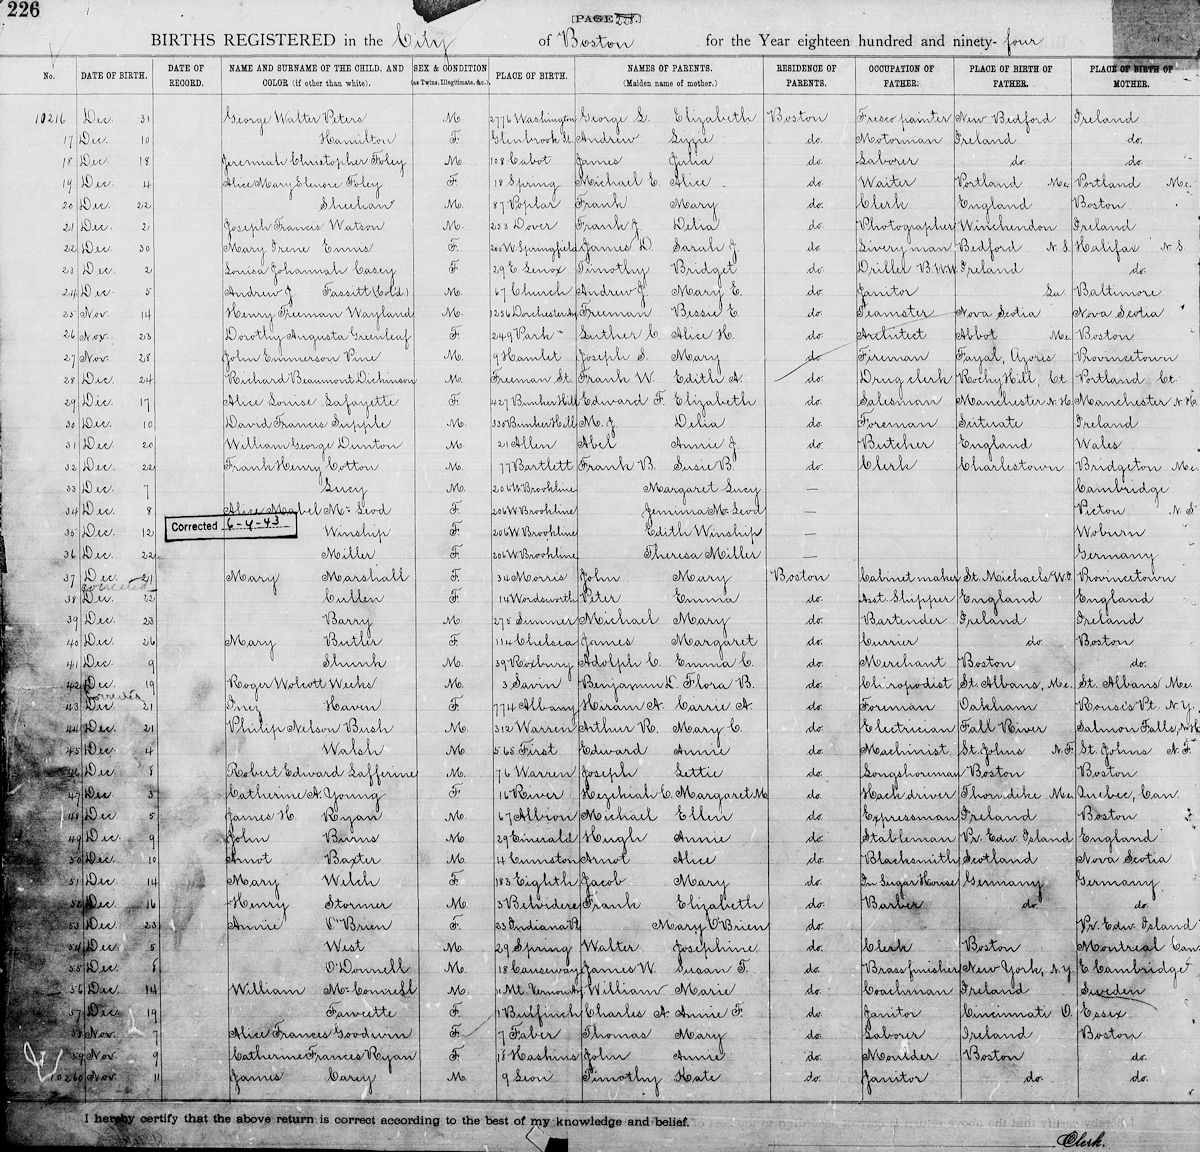 226
PAGE 228.
BIRTHS REGISTERED in the City of Boston for the Year eighteen hundred and ninety-four
No. DATE OF BIRTH. DATE OF RECORD. NAME AND SURNAME OF THE CHILD, AND COLOR (if other than white). SEX & CONDITION (as Twins, Illegitimate, &c.) PLACE OF BIRTH. NAMES OF PARENTS. (Maiden name of mother.) RESIDENCE OF PARENTS. OCCUPATION OF FATHER. PLACE OF BIRTH OF FATHER. PLACE OF BIRTH OF MOTHER.
10216 Dec. 31 George Walter Peters M. 2776 Washington George S. Elizabeth Boston Fresco painter New Bedford Ireland
17 Dec. 10 Hamilton F. Glenbrook St. Andrew Lizzie do. Motorman Ireland do.
18 Dec. 18 Jeremiah Christopher Foley M. 108 Cabot James Julia do. Laborer do. do.
19 Dec. 4 Alice Mary Elenore Foley F. 18 Spring Michael E. Alice do. Waiter Portland Me. Portland Me.
20 Dec. 22 Sheehan M. 87 Poplar Frank Mary do. Clerk England Boston
21 Dec. 2 Joseph Francis Watson M. 253 Dover Frank J. Delia do. Photographer Winchendon Ireland
22 Dec. 30 Mary Irene Ennis F. 200 W. Springfield James D. Sarah J. do. Liveryman Bedford N.S. Halifax N.S.
23 Dec. 2 Louisa Johannah Casey F. 29 E. Lenox Timothy Bridget do. Driller B.W.W. Ireland do.
24 Dec. 5 Andrew J. Fassitt (Cold.) M. 67 Church Andrew J. Mary E. do. Janitor Baltimore
25 Nov. 14 Henry Freeman Wayland M. 1256 Dorchester Av. Freeman Bessie E. do. Teamster Nova Scotia Nova Scotia
26 Nov. 23 Dorothy Augusta Greenleaf F. 249 Park Luther C. Alice H. do. Architect Abbot Me. Boston
27 Nov. 28 John Emmerson Pine M. 9 Hamlet Joseph S. Mary do. Fireman Fayal, Azores Provincetown
28 Dec. 24 Richard Beaumont Dickinson M. Freeman St. Frank W. Edith A. do. Drug clerk Rocky Hill, Ct. Portland Ct.
29 Dec. 17 Alice Louise Lafayette F. 427 Bunker Hill Edward F. Elizabeth do. Salesman Manchester N.H. Manchester N.H.
30 Dec. 10 David Francis Supple M. 330 Bunker Hill M. J. Delia do. Foreman Scituate Ireland
31 Dec. 20 William George Dunton M. 21 Allen Abel Annie J. do. Butcher England Wales
32 Dec. 22 Frank Henry Cotton M. 77 Bartlett Frank B. Susie B. do. Clerk Charlestown Bridgeton Me.
33 Dec. 7 Lucy M. 206 W. Brookline Margaret Lucy — Cambridge
34 Dec. 8 Alice Mabel McLeod F. 206 W. Brookline Jemima McLeod — Picton N.S.
Corrected 6-4-43
35 Dec. 12 Winship F. 206 W. Brookline Edith Winship — Woburn
36 Dec. 22 Miller F. 206 W. Brookline Theresa Miller — Germany
37 Dec. 21 Mary Marshall F. 34 Morris John Mary Boston Cabinet maker St. Michaels W.I. Provincetown
corrected
38 Dec. 22 Cullen F. 14 Wordsworth Peter Emma do. Asst. Shipper England England
39 Dec. 23 Barry M. 275 Summer Michael Mary do. Bartender Ireland Ireland
40 Dec. 26 Mary Butler F. 114 Chelsea James Margaret do. Currier do. Boston
41 Dec. 9 Shunk M. 39 Roxbury Adolph C. Emma C. do. Merchant Boston do.
42 Dec. 19 Roger Wolcott Weeks M. 3 Savin Benjamin D. Flora B. do. Chiropodist St. Albans, Me. St. Albans Me.
Corrected
43 Dec. 21 Inez Haven F. 774 Albany Hiram A. Carrie A. do. Foreman Oakham Rouse's Pt. N.Y.
44 Dec. 21 Philip Nelson Bush M. 312 Warren Arthur R. Mary C. do. Electrician Fall River Salmon Falls, N.H.
45 Dec. 4 Walsh M. 565 First Edward Annie do. Machinist St. Johns N.F. St. Johns N.F.
46 Dec. 8 Robert Edward Lafferine M. 76 Warren Joseph Lettie do. Longshoreman Boston Boston
47 Dec. 3 Catherine A. Young F. 16 River Hezekiah C. Margaret M do. Hack driver Thorndike Me. Quebec, Can.
48 Dec. 5 James H. Ryan M. 67 Albion Michael Ellen do. Expressman Ireland Boston
49 Dec. 9 John Burns M. 29 Emerald Hugh Annie do. Stableman Pr. Edw. Island England
50 Dec. 10 Arnot Baxter M. 4 Cunston Arnot Alice do. Blacksmith Scotland Nova Scotia
51 Dec. 14 Mary Welch F. 183 Eighth Jacob Mary do. In Sugar House Germany Germany
52 Dec. 16 Henry Stormer M. 3 Belvidere Frank Elizabeth do. Barber do. do.
53 Dec. 23 Annie O'Brien F. 23 Indiana Pl Mary O'Brien do. Pr. Edw. Island
54 Dec. 5 West M. 29 Spring Walter Josephine do. Clerk Boston Montreal Can
55 Dec. 8 O'Donnell M. 18 Causeway James W. Susan T. do. Brass finisher New York, N.Y. E Cambridge
56 Dec. 14 William McConnell M. 11 Mt. Vernon Av William Marie do. Coachman Ireland Sweden
57 Dec. 19 Fawcette F. 1 Bulfinch Charles A. Annie F. do. Janitor Cincinnati O. Essex
58 Nov. 7 Alice Frances Goodwin F. 7 Faber Thomas Mary do. Laborer Ireland Boston
59 Nov. 9 Catherine Frances Ryan F. 18 Haskins John Annie do. Moulder Boston do.
10260 Nov. 11 James Carey M. 9 Leon Timothy Kate do. Janitor do. do.
I hereby certify that the above return is correct according to the best of my knowledge and belief.
Clerk.